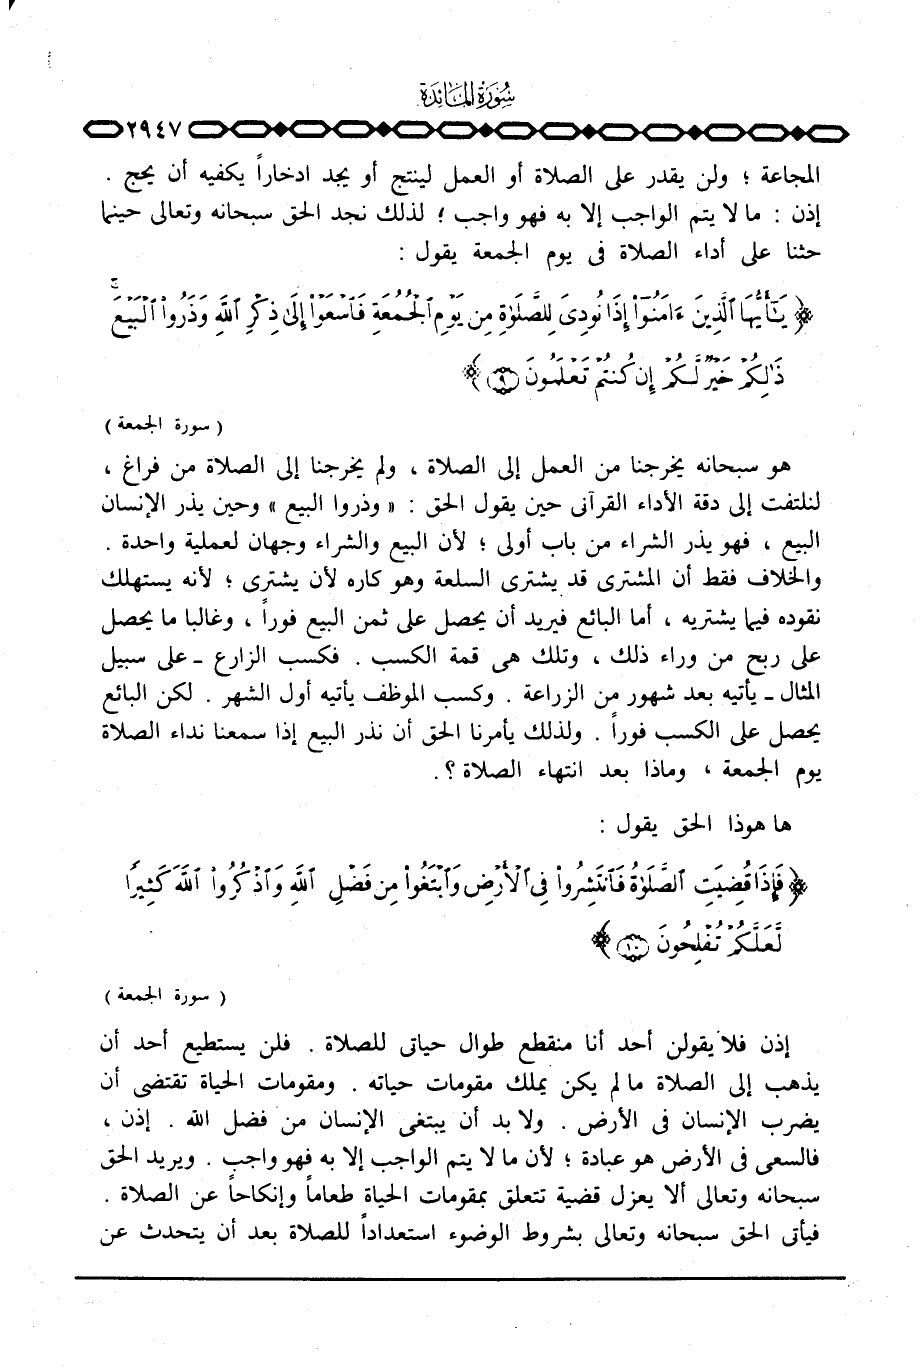 سُورَةُ المَائِدَة
٢٩٤٧
المجاعة ؛ ولن يقدر على الصلاة أو العمل لينتج أو يجد ادخاراً يكفيه أن يحج .
إذن : ما لا يتم الواجب إلا به فهو واجب ؛ لذلك نجد الحق سبحانه وتعالى حينما
حثنا على أداء الصلاة فى يوم الجمعة يقول :
﴿ يَٰٓأَيُّهَا ٱلَّذِينَ ءَامَنُوٓا۟ إِذَا نُودِىَ لِلصَّلَوٰةِ مِن يَوْمِ ٱلْجُمُعَةِ فَٱسْعَوْا۟ إِلَىٰ ذِكْرِ ٱللَّهِ وَذَرُوا۟ ٱلْبَيْعَ ۚ
ذَٰلِكُمْ خَيْرٌ لَّكُمْ إِن كُنتُمْ تَعْلَمُونَ ٩ ﴾
( سورة الجمعة )
هو سبحانه يخرجنا من العمل إلى الصلاة ، ولم يخرجنا إلى الصلاة من فراغ ،
لنلتفت إلى دقة الأداء القرآنى حين يقول الحق : « وذروا البيع » وحين يذر الإنسان
البيع ، فهو يذر الشراء من باب أولى ؛ لأن البيع والشراء وجهان لعملية واحدة .
والخلاف فقط أن المشترى قد يشترى السلعة وهو كاره لأن يشترى ؛ لأنه يستهلك
نقوده فيما يشتريه ، أما البائع فيريد أن يحصل على ثمن البيع فوراً ، وغالبا ما يحصل
على ربح من وراء ذلك ، وتلك هى قمة الكسب . فكسب الزارع ـ على سبيل
المثال ـ يأتيه بعد شهور من الزراعة . وكسب الموظف يأتيه أول الشهر . لكن البائع
يحصل على الكسب فوراً . ولذلك يأمرنا الحق أن نذر البيع إذا سمعنا نداء الصلاة
يوم الجمعة ، وماذا بعد انتهاء الصلاة ؟.
ها هوذا الحق يقول :
﴿ فَإِذَا قُضِيَتِ ٱلصَّلَوٰةُ فَٱنتَشِرُوا۟ فِى ٱلْأَرْضِ وَٱبْتَغُوا۟ مِن فَضْلِ ٱللَّهِ وَٱذْكُرُوا۟ ٱللَّهَ كَثِيرًا
لَّعَلَّكُمْ تُفْلِحُونَ ١٠ ﴾
( سورة الجمعة )
إذن فلا يقولن أحد أنا منقطع طوال حياتى للصلاة . فلن يستطيع أحد أن
يذهب إلى الصلاة ما لم يكن يملك مقومات حياته . ومقومات الحياة تقتضى أن
يضرب الإنسان فى الأرض . ولا بد أن يبتغى الإنسان من فضل الله . إذن ،
فالسعى فى الأرض هو عبادة ؛ لأن ما لا يتم الواجب إلا به فهو واجب . ويريد الحق
سبحانه وتعالى ألا يعزل قضية تتعلق بمقومات الحياة طعاماً وإنكاحاً عن الصلاة .
فيأتى الحق سبحانه وتعالى بشروط الوضوء استعداداً للصلاة بعد أن يتحدث عن